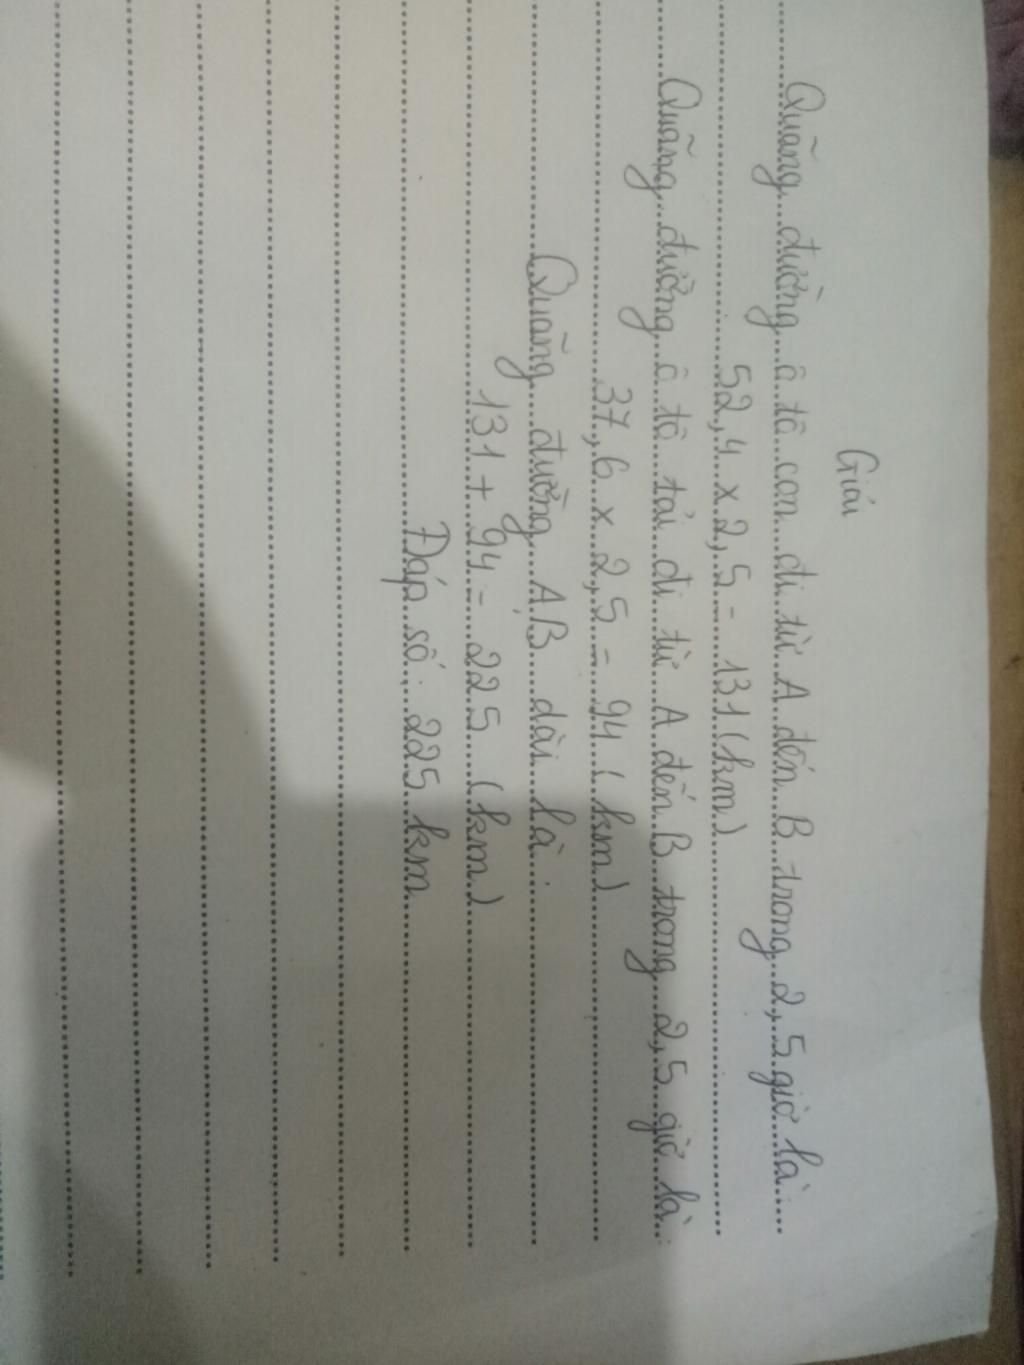 Giải
Quãng đường ô tô con đi từ A đến B trong 2,5 giờ là:
52,4 x 2,5 = 131 (km)
Quãng đường ô tô tải đi từ A đến B trong 2,5 giờ là:
37,6 x 2,5 = 94 (km)
Quãng đường AB dài là:
131 + 94 = 225 (km)
Đáp số: 225 km